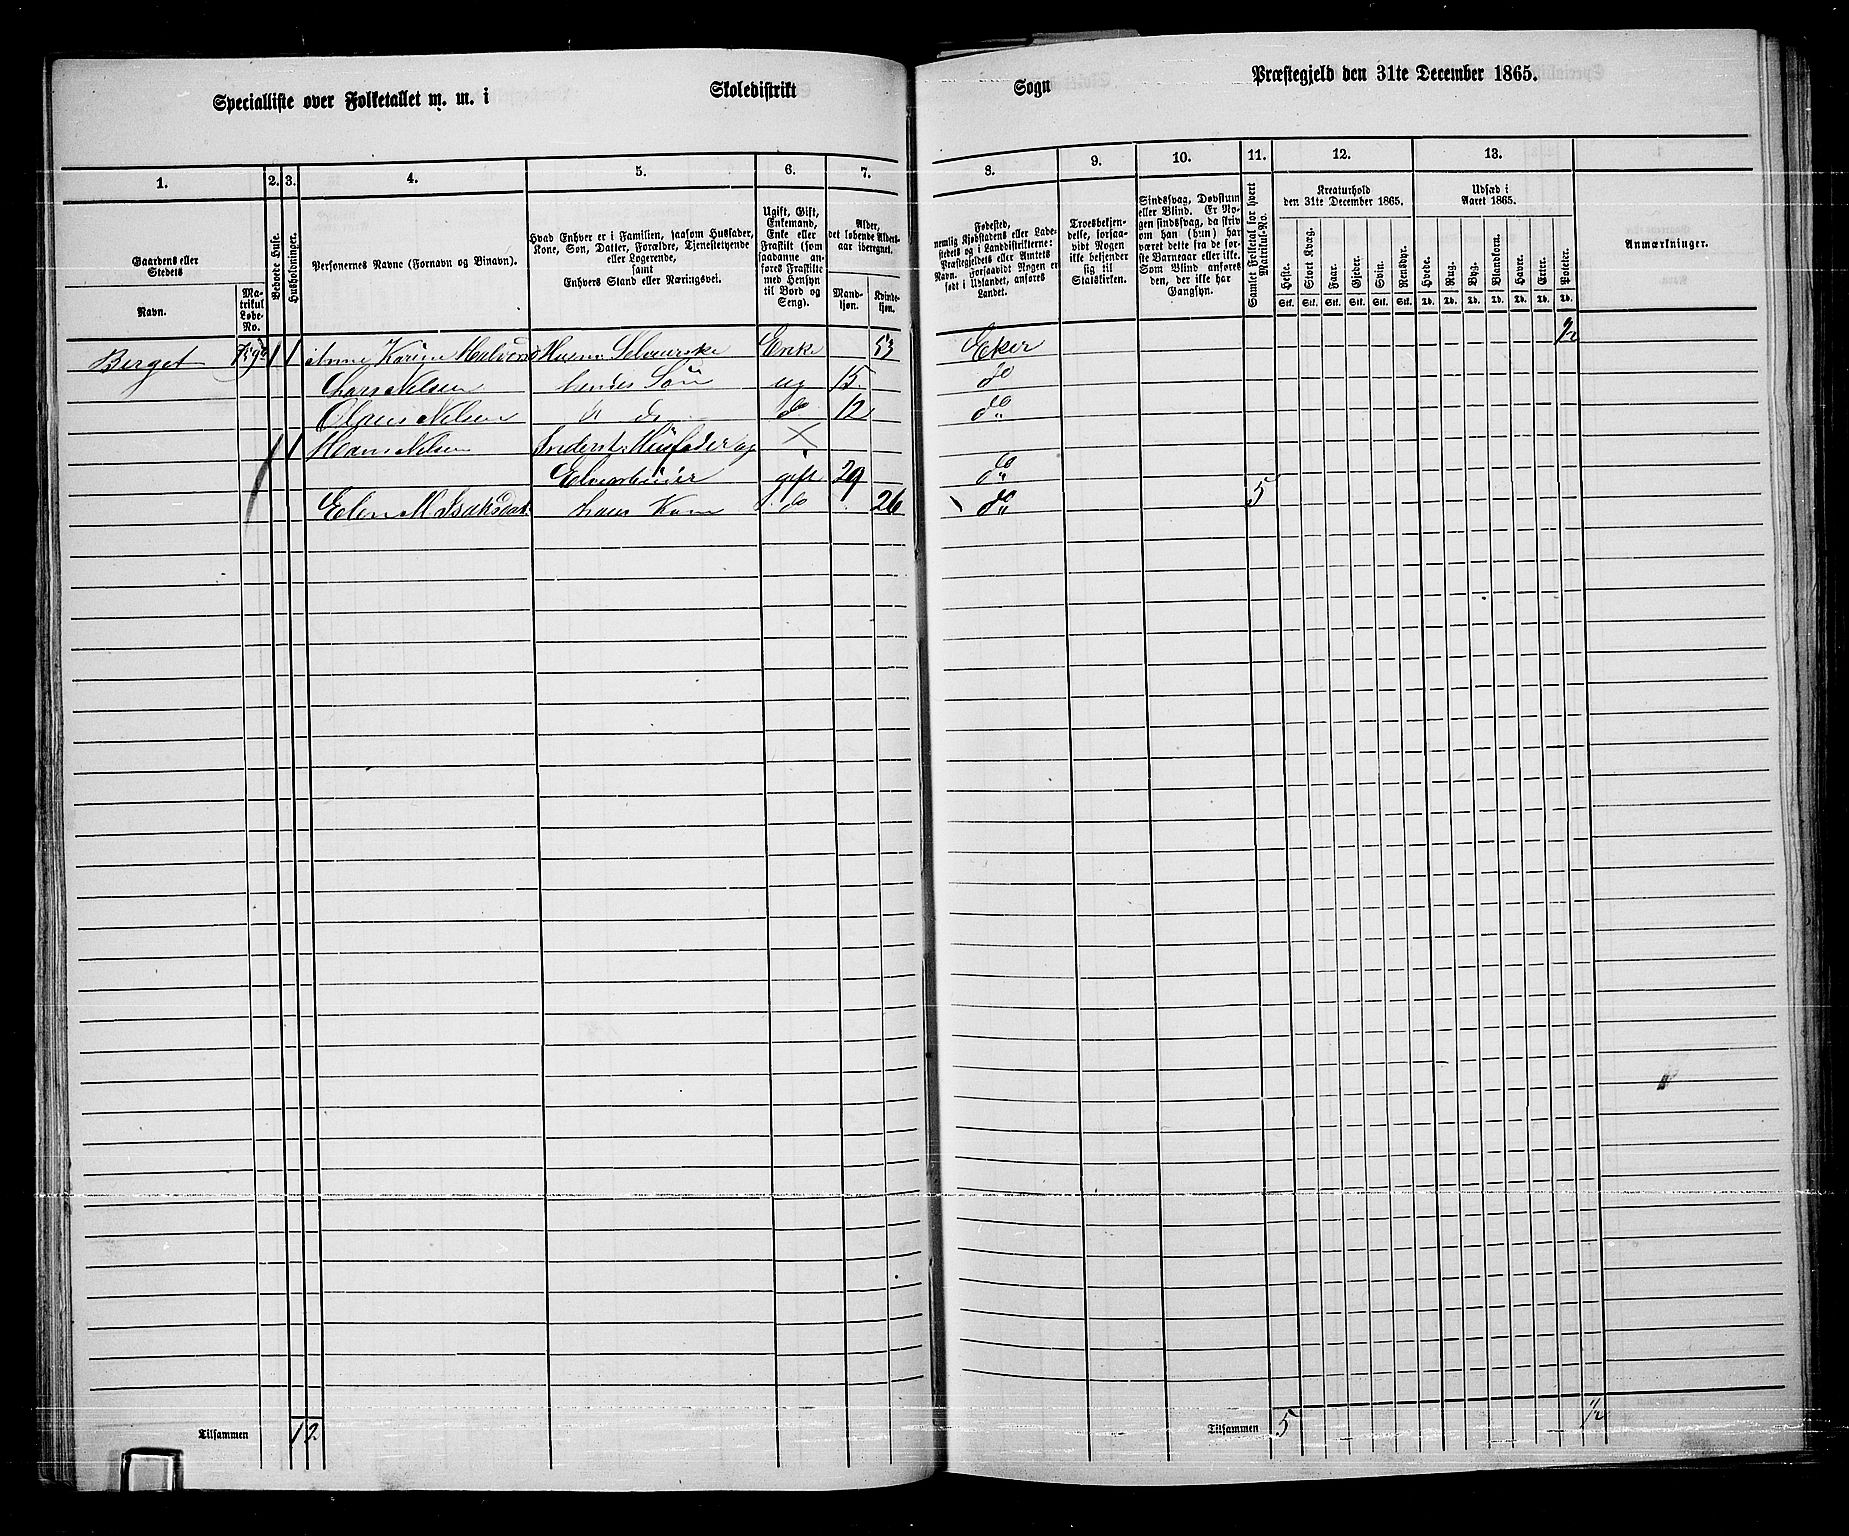 Specialliste over Folketallet m. m. i Skoledistrikt Sogn Præstegjeld den 31te December 1865.
1. 2. 3. 4. 5. 6. 7. 8. 9. 10. 11. 12. 13.
Gaardens eller Stedets
Navn.
Matrikul Løbe-No.
Beboede Huse.
Husholdninger.
Personernes Navne (Fornavn og Binavn).
Hvad Enhver er i Familien, saasom Husfader, Kone, Søn, Datter, Forældre, Tjenestetyende eller Logerende,
samt
Enhvers Stand eller Næringsvei.
Ugift, Gift, Enkemand, Enke eller Fraskilt (som saadanne anføres Fraskilte med Hensyn til Bord og Seng).
Alder, det løbende Aldersaar iberegnet.
Mandkjøn.
Kvindekjøn.
Fødested, nemlig Kjøbstadens eller Ladestedets og i Landdistrikterne: Præstegjeldets eller Amtets Navn. Forsaavidt Nogen er født i Udlandet, anføres Landet.
Troesbekjendelse, forsaavidt Nogen ikke bekjender sig til Statskirken.
Sindssvag, Døvstum eller Blind. Er Nogen sindssvag, da skrives, om han (hun) har været dette fra de første Barneaar eller ikke. Som Blind anføres den, der ikke har Gangsyn.
Samlet Folketal for hvert Matrikul-No.
Kreaturhold den 31te December 1865.
Heste. Stort Kvæg. Faar. Gjeder. Svin. Rensdyr.
Stk. Stk. Stk. Stk. Stk. Stk.
Udsæd i Aaret 1865.
Hvede. Rug. Byg. Blandkorn. Havre. Erter. Poteter.
Td. Td. Td. Td. Td. Td. Td.
Anmærkninger.
Berget 1 1 Anne Karine Enke 53 Eker 1/2
Lars Nilsen hendes Søn ug 15 do
Olaus Nilsen do do 12 do
1 1 Hans Nilsen Inderst Husfader og
gift 29 do
Elen M Isaksdat hans Kone do 26 do 5
Tilsammen 1 2
Tilsammen 5 1/2